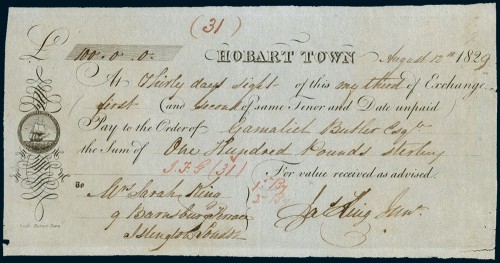 (31)
£ 100.0.0. HOBART TOWN August 12th 1829
At Thirty days sight of this my third of Exchange
first (and Second of same Tenor and Date unpaid
Pay to the Order of Gamaliel Butler Esqre
the Sum of One Hundred Pounds Sterling
I.F.G (31) For value received as advised.
To Mrs Sarah King
9 Barnsbury Terrace
Islington London
Jas King Junr